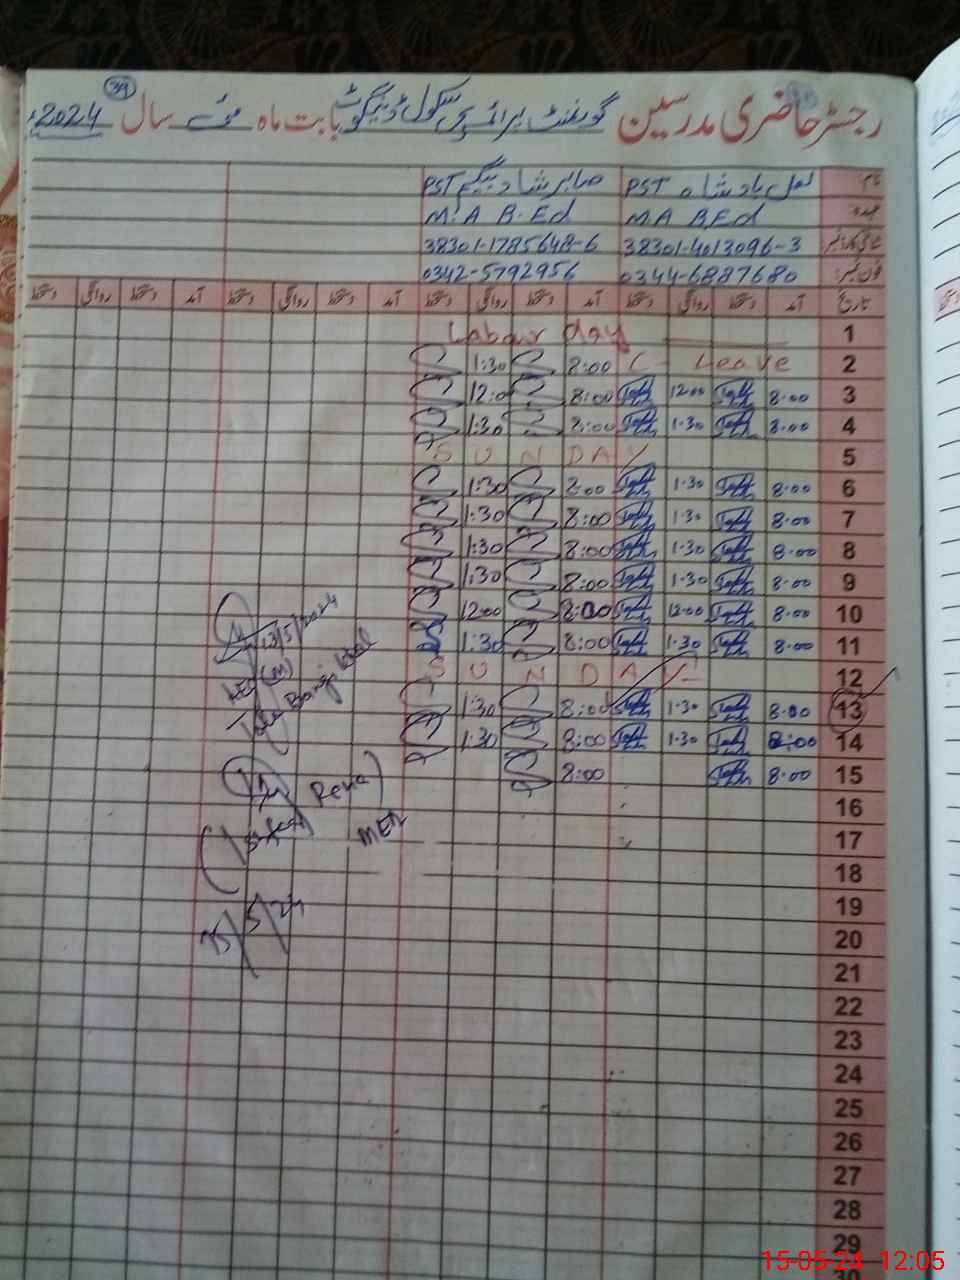 39
رجسٹر حاضری مدرسین گورنمنٹ پرائمری سکول ڈیگوٹ بابت ماہ مئی سال 2024ء
نام لعل بادشاہ PST صابر شاد بیگم PST
عہدہ M A B.Ed M.A B.Ed
شناختی کارڈ نمبر 38301-4013096-3 38301-1785648-6
فون نمبر: 0344-6887680 0342-5792956
تاریخ آمد دستخط روانگی دستخط آمد دستخط روانگی دستخط آمد دستخط روانگی دستخط آمد دستخط روانگی دستخط
1 Labour day
2 C- Leave 8:00 1:30
3 8:00 12:00 8:00 12:00
4 8:00 1:30 8:00 1:30
5 SUNDAY
6 8:00 1:30 8:00 1:30
7 8:00 1:30 8:00 1:30
8 8:00 1:30 8:00 1:30
9 8:00 1:30 8:00 1:30
10 8:00 12:00 8:00 12:00
11 8:00 1:30 8:00 1:30
12 SUNDAY
13 8:00 1:30 8:00 1:30
14 8:00 1:30 8:00 1:30
15 8:00 8:00
16
17
18
19
20
21
22
23
24
25
26
27
28
29
30
13/5/2024
(M)
MEA
15/5/24
15-05-24 12:05